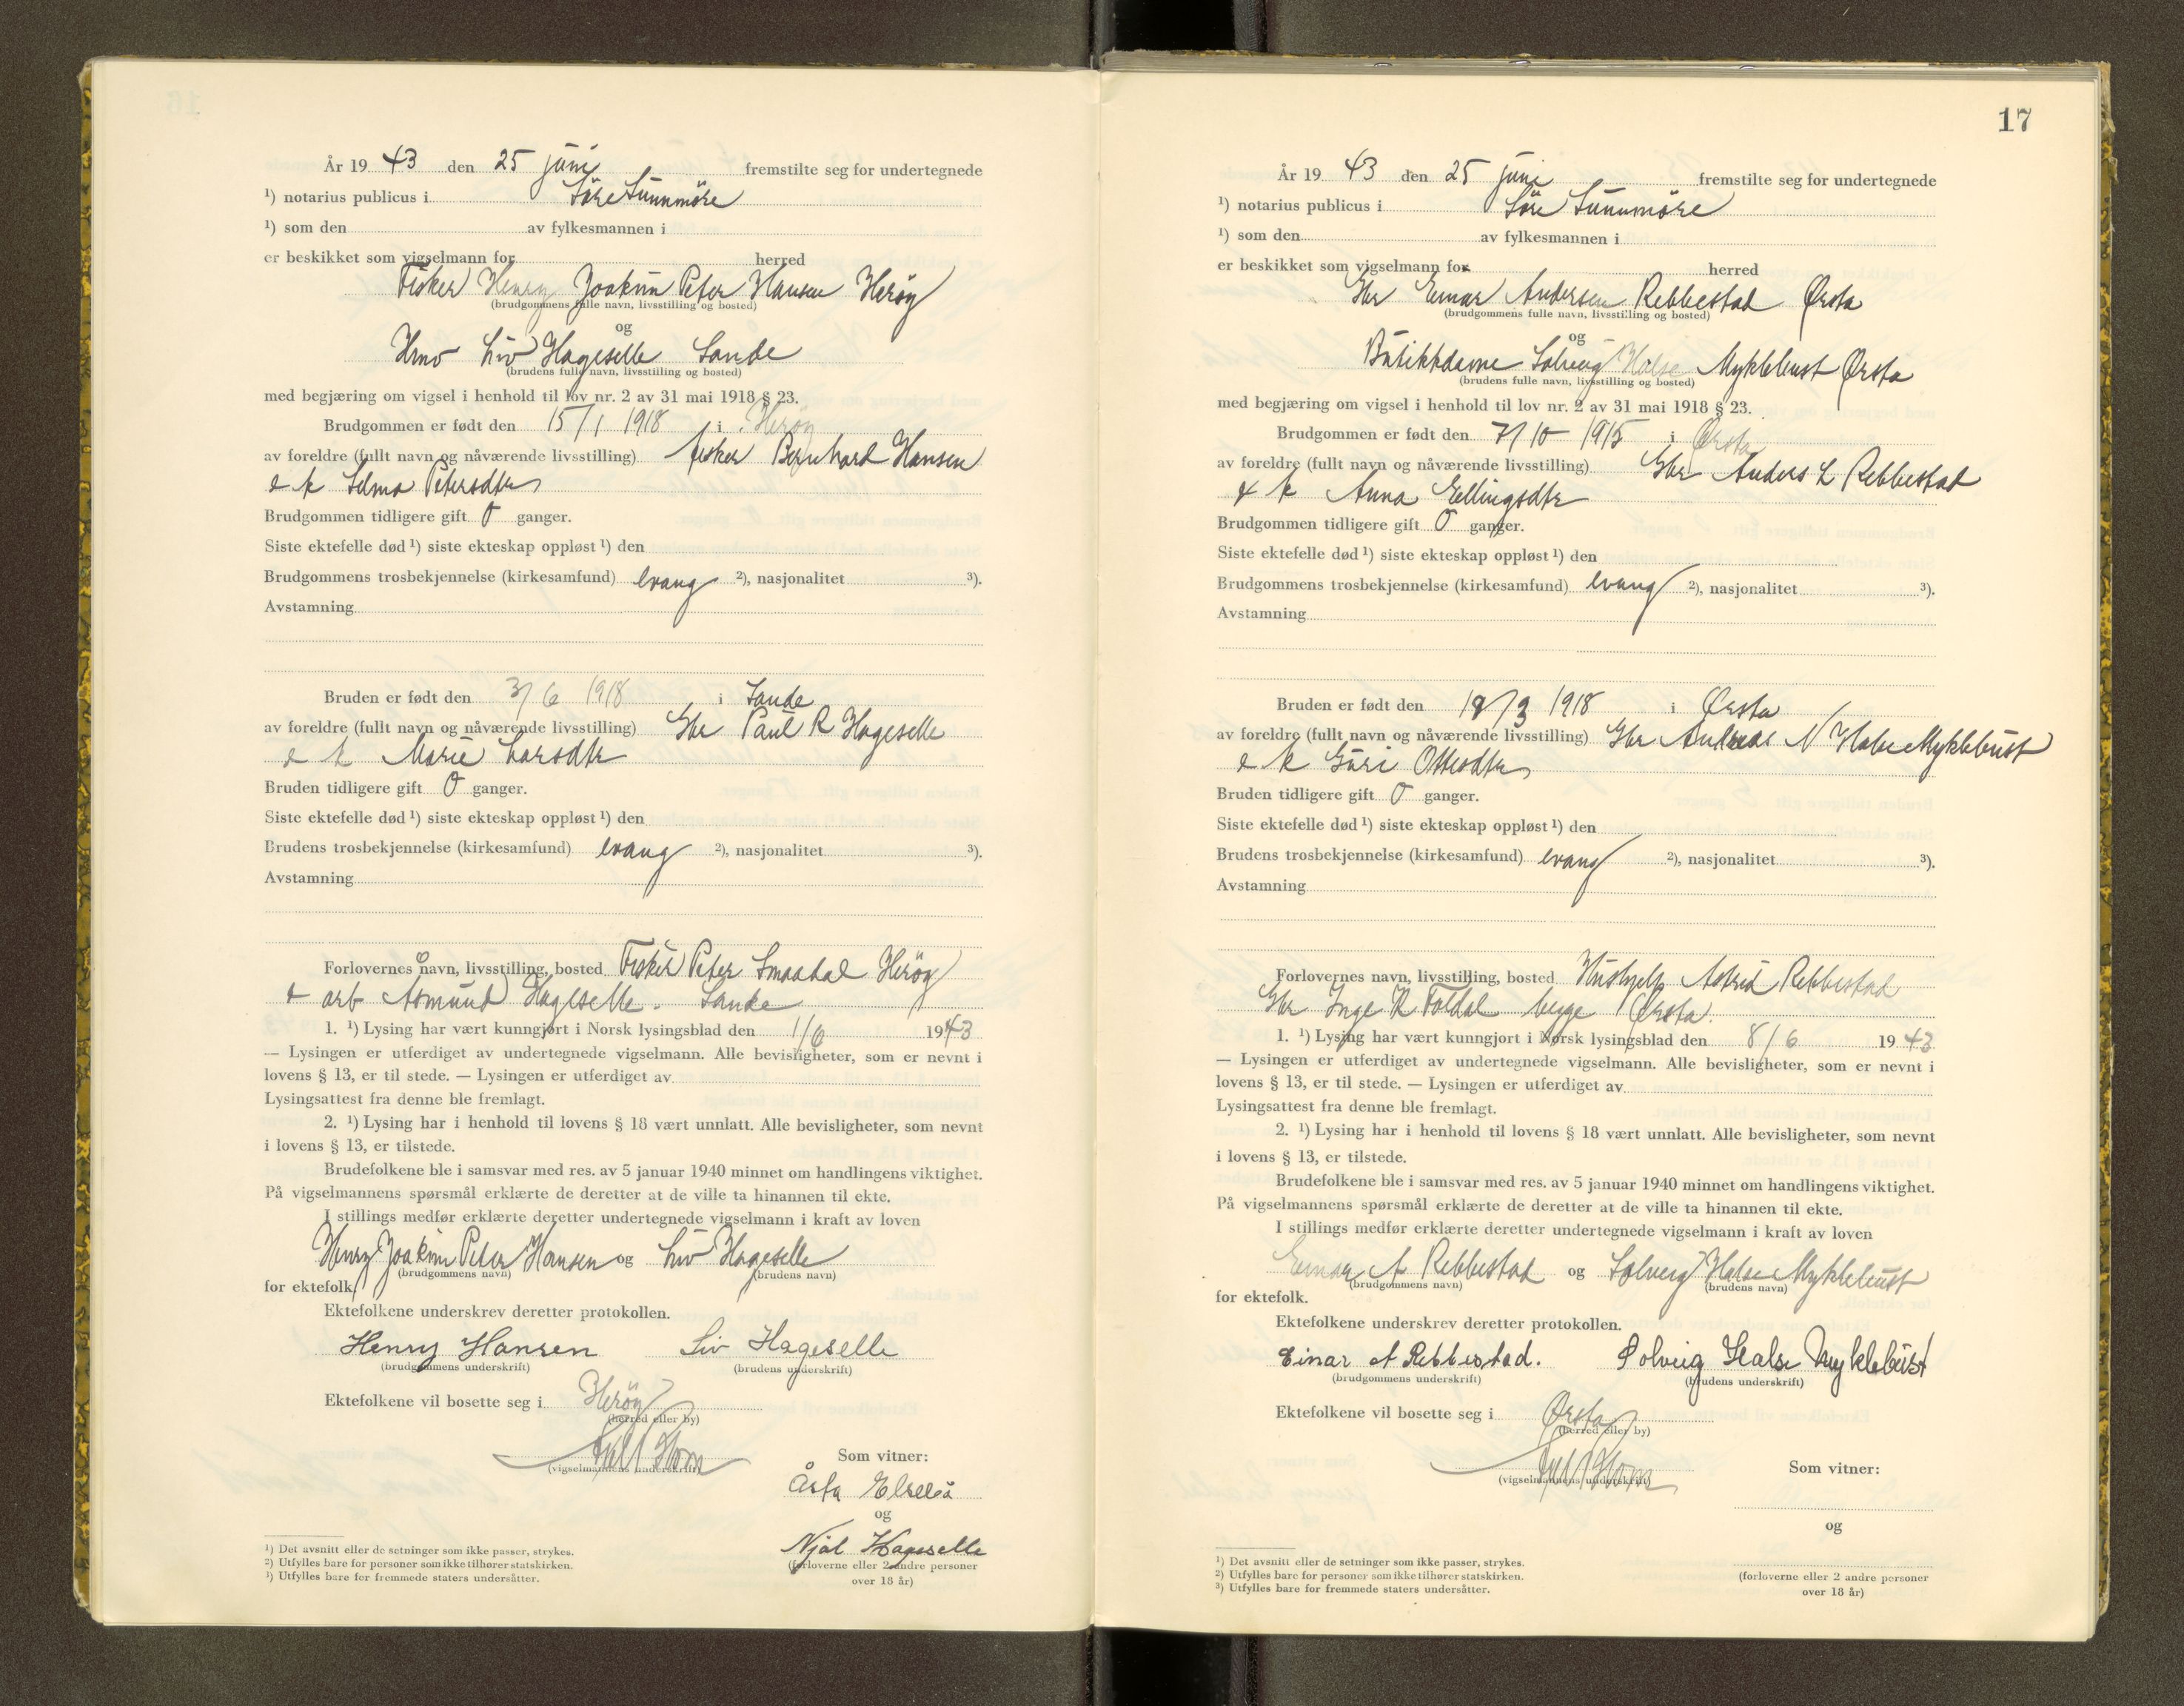 År 19 43 den 25 juni fremstilte seg for undertegnede
¹) notarius publicus i Söre Sunnmöre
¹) som den av fylkesmannen i
er beskikket som vigselmann for herred
Fisker Henry Joakim Peter Hansen Heröy
(brudgommens fulle navn, livsstilling og bosted)
og
Liv Hageselle Sande
(brudens fulle navn, livsstilling og bosted)
med begjæring om vigsel i henhold til lov nr. 2 av 31 mai 1918 § 23.
Brudgommen er født den 15/1 1918 i Heröy
av foreldre (fullt navn og nåværende livsstilling) fisker Bernhard Hansen
& k Selma Petersdtr
Brudgommen tidligere gift 0 ganger.
Siste ektefelle død ¹) siste ekteskap oppløst ¹) den
Brudgommens trosbekjennelse (kirkesamfund) evang ²), nasjonalitet ³).
Avstamning
Bruden er født den 3/6 1918 i Sande
av foreldre (fullt navn og nåværende livsstilling) Gbr Paul R Hageselle
& k Marie Larsdtr
Bruden tidligere gift 0 ganger.
Siste ektefelle død ¹) siste ekteskap oppløst ¹) den
Brudens trosbekjennelse (kirkesamfund) evang ²), nasjonalitet ³).
Avstamning
Forlovernes navn, livsstilling, bosted Fisker Peter Heröy
& arb Asmund Hageselle. Sande
1. ¹) Lysing har vært kunngjort i Norsk lysingsblad den 1/6 1943
— Lysingen er utferdiget av undertegnede vigselmann. Alle bevisligheter, som er nevnt i
lovens § 13, er til stede. — Lysingen er utferdiget av
Lysingsattest fra denne ble fremlagt.
2. ¹) Lysing har i henhold til lovens § 18 vært unnlatt. Alle bevisligheter, som nevnt
i lovens § 13, er tilstede.
Brudefolkene ble i samsvar med res. av 5 januar 1940 minnet om handlingens viktighet.
På vigselmannens spørsmål erklærte de deretter at de ville ta hinannen til ekte.
I stillings medfør erklærte deretter undertegnede vigselmann i kraft av loven
Henry Joakim Peter Hansen og Liv Hageselle
(brudgommens navn) (brudens navn)
for ektefolk.
Ektefolkene underskrev deretter protokollen.
Henry Hansen Liv Hageselle
(brudgommens underskrift) (brudens underskrift)
Ektefolkene vil bosette seg i Heröy
(herred eller by)
(vigselmannens underskrift)
Som vitner:
Åsta
og
Njål Hageselle
(forloverne eller 2 andre personer
over 18 år)
¹) Det avsnitt eller de setninger som ikke passer, strykes.
²) Utfylles bare for personer som ikke tilhører statskirken.
³) Utfylles bare for fremmede staters undersåtter.
17
År 19 43 den 25 juni fremstilte seg for undertegnede
¹) notarius publicus i Söre Sunnmöre
¹) som den av fylkesmannen i
er beskikket som vigselmann for herred
Gbr Einar Andersen Rebbestad Ørsta
(brudgommens fulle navn, livsstilling og bosted)
og
Butikkdame Solveig Halse Myklebust Ørsta
(brudens fulle navn, livsstilling og bosted)
med begjæring om vigsel i henhold til lov nr. 2 av 31 mai 1918 § 23.
Brudgommen er født den 7/10 1915 i Ørsta
av foreldre (fullt navn og nåværende livsstilling) Gbr Anders L Rebbestad
& k Anna Ellingsdtr
Brudgommen tidligere gift 0 ganger.
Siste ektefelle død ¹) siste ekteskap oppløst ¹) den
Brudgommens trosbekjennelse (kirkesamfund) evang ²), nasjonalitet ³).
Avstamning
Bruden er født den 1918 i Ørsta
av foreldre (fullt navn og nåværende livsstilling) Gbr Andreas N Halse Myklebust
& k Guri Ottesdtr
Bruden tidligere gift 0 ganger.
Siste ektefelle død ¹) siste ekteskap oppløst ¹) den
Brudens trosbekjennelse (kirkesamfund) evang ²), nasjonalitet ³).
Avstamning
Forlovernes navn, livsstilling, bosted Hushjelp Astrid Rebbestad
Gbr Inge K Foldal begge Ørsta.
1. ¹) Lysing har vært kunngjort i Norsk lysingsblad den 8/6 19 43
— Lysingen er utferdiget av undertegnede vigselmann. Alle bevisligheter, som er nevnt i
lovens § 13, er til stede. — Lysingen er utferdiget av
Lysingsattest fra denne ble fremlagt.
2. ¹) Lysing har i henhold til lovens § 18 vært unnlatt. Alle bevisligheter, som nevnt
i lovens § 13, er tilstede.
Brudefolkene ble i samsvar med res. av 5 januar 1940 minnet om handlingens viktighet.
På vigselmannens spørsmål erklærte de deretter at de ville ta hinannen til ekte.
I stillings medfør erklærte deretter undertegnede vigselmann i kraft av loven
Einar A Rebbestad og Solveig Halse Myklebust
(brudgommens navn) (brudens navn)
for ektefolk.
Ektefolkene underskrev deretter protokollen.
Einar A Rebbestad. Solveig Halse Myklebust
(brudgommens underskrift) (brudens underskrift)
Ektefolkene vil bosette seg i Ørsta
(herred eller by)
(vigselmannens underskrift)
Som vitner:
og
(forloverne eller 2 andre personer
over 18 år)
¹) Det avsnitt eller de setninger som ikke passer, strykes.
²) Utfylles bare for personer som ikke tilhører statskirken.
³) Utfylles bare for fremmede staters undersåtter.